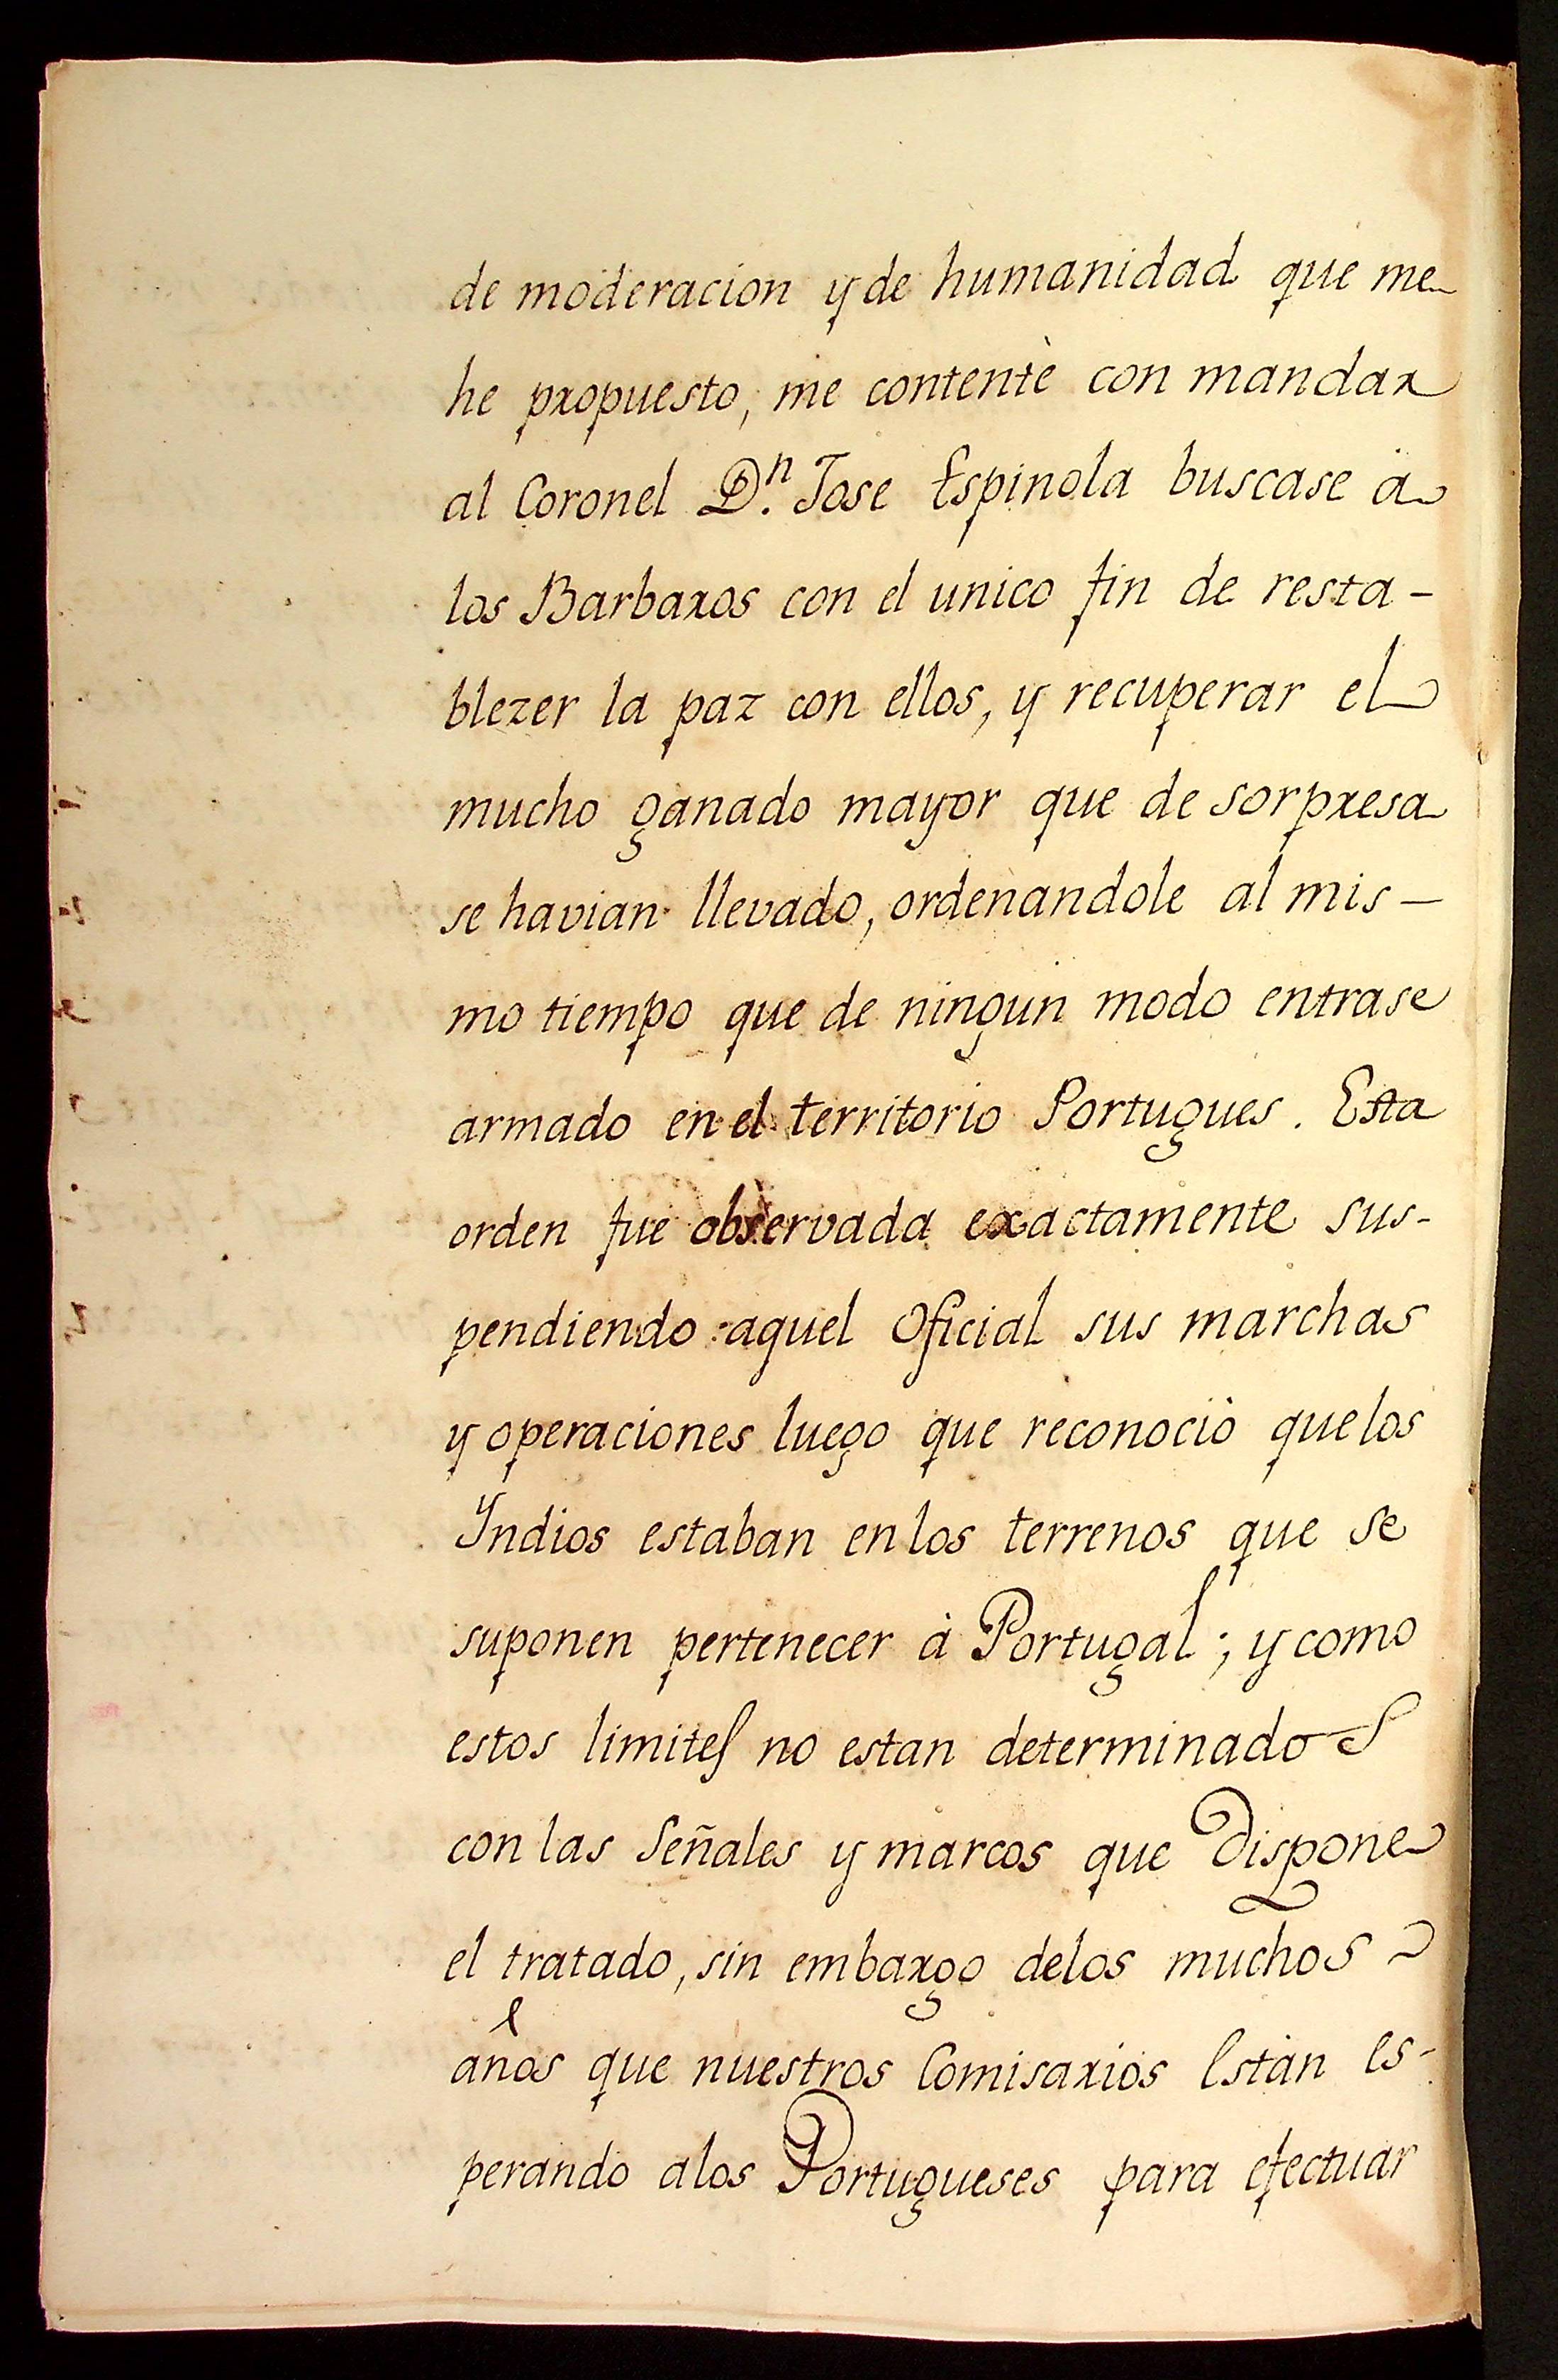 de moderacion y de humanidad que me
he propuesto, me contentè con mandar
al Coronel Dn. Jose Espinola buscase à
los Barbaros con el unico fin de resta-
blezer la paz con ellos, y recuperar el
mucho ganado mayor que de sorpresa
se havian llevado, ordenandole al mis-
mo tiempo que de ningun modo entrase
armado en el territorio Portugues. Esta
orden fue observada exactamente sus-
pendiendo aquel Oficial sus marchas
y operaciones luego que reconociò que los
Yndios estaban en los terrenos que se
suponen pertenecer à Portugal; y como
estos limites no estan determinados
con las Señales y marcos que dispone
el tratado, sin embargo delos muchos
años que nuestros Comisarios Estàn es-
perando alos Portugueses para efectuar